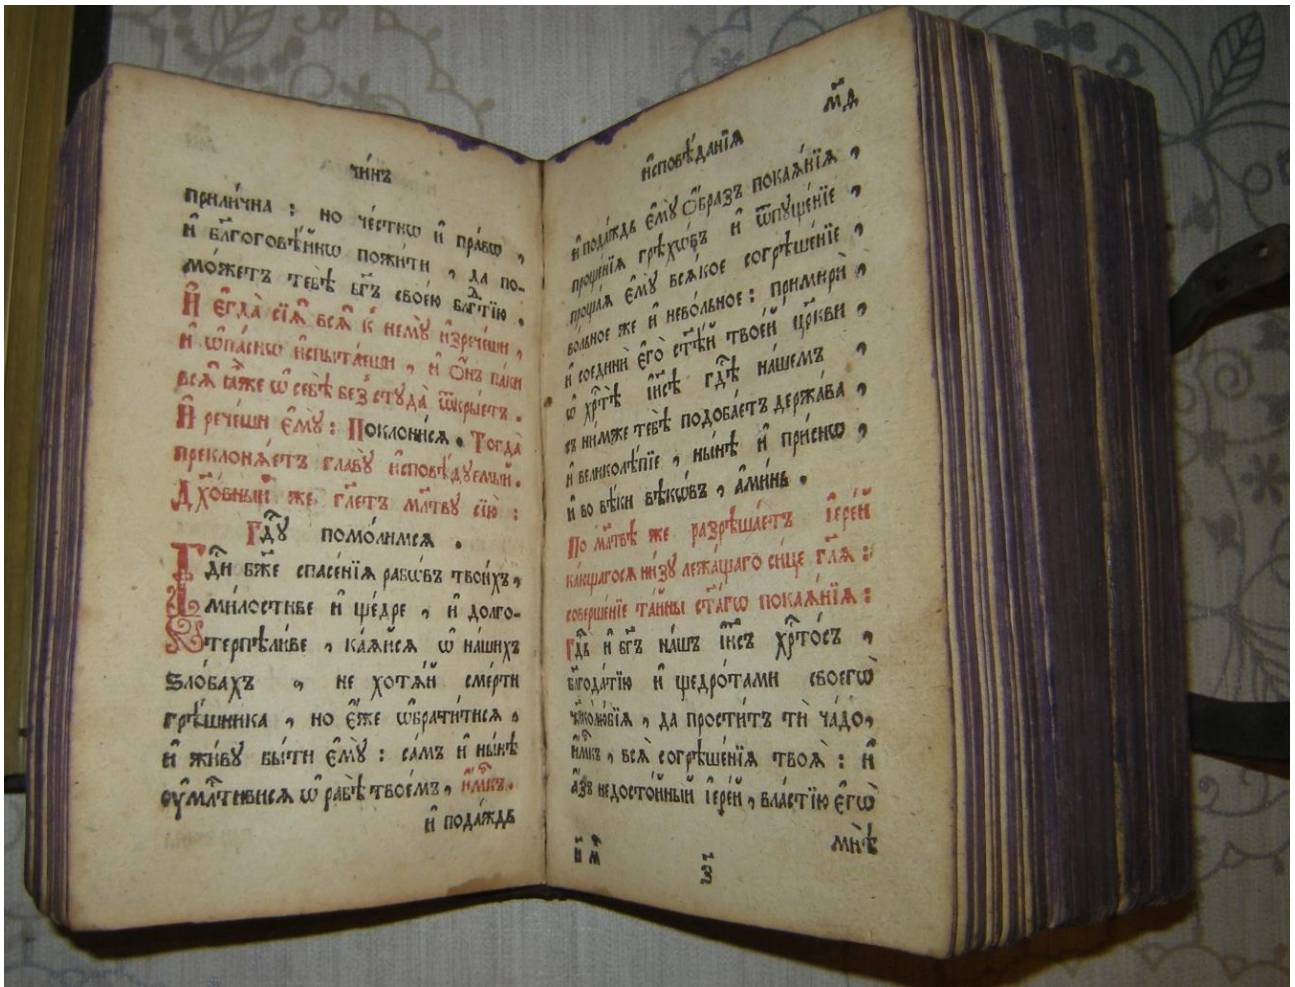 чи́нъ
прили́чна : но че́стнѡ и҆ пра́вѡ ,
и҆ бл҃гоговѣ́йнѡ пожи́ти , да по-
мо́жетъ тебѣ̀ бг҃ъ свое́ю блгⷣтїю .
И҆ є҆гда̀ сїѧ̑ всѧ̑ к немꙋ̀ и҆зрече́ши ,
и҆ ѡ҆па́снѡ и҆спыта́еши , и҆ ѻ҆́нъ па́ки
всѧ̑ ꙗ҆̀же ѡ҆ себѣ̀ без̾ стꙋда̀ ѿкры́етъ .
И҆ рече́ши є҆мꙋ̀ : Поклони́сѧ . Тогда̀
преклонѧ́етъ главꙋ̀ и҆сповѣ́дꙋемый .
Дꙋхо́вный же гл҃етъ мл҃твꙋ сїю̀ :
Гдⷭ҇ꙋ помо́лимсѧ .
Гдⷭ҇и бж҃е спасе́нїѧ рабѡ́въ твои́хъ ,
ми́лостиве и҆ ще́дре , и҆ долго-
терпѣли́ве , ка́ѧйсѧ ѡ҆ на́шихъ
ѕло́бахъ , не хотѧ́й сме́рти
грѣ́шника , но є҆́же ѡ҆брати́тисѧ ,
и҆ жи́вꙋ бы́ти є҆мꙋ̀ : са́мъ и҆ ны́нѣ
ᲂу҆мл҃тивисѧ ѡ҆ рабѣ̀ твое́мъ , и҆́мкъ .
и҆ пода́ждь
м҃д
и҆сповѣ́данїѧ
и҆ пода́ждь є҆мꙋ̀ ѻ҆́бразъ покаѧ́нїѧ ,
проще́нїѧ грѣхѡ́въ и҆ ѿпꙋще́нїе ,
проща́ѧ є҆мꙋ̀ всѧ́кое согрѣше́нїе ,
во́льное же и҆ нево́льное : примирѝ
и҆ соединѝ є҆го̀ ст҃ѣ́й твое́й цр҃кви ,
ѡ҆ хрⷭ҇тѣ̀ і҆и҃сѣ гдⷭ҇ѣ на́шемъ ,
съ ни́мже тебѣ̀ подоба́етъ держа́ва ,
и҆ великолѣ́пїе , ны́нѣ и҆ при́снѡ ,
и҆ во вѣ́ки вѣкѡ́въ , а҆ми́нь .
По мл҃твѣ же разрѣша́етъ і҆ере́й
ка́ющагосѧ ни́зꙋ лежа́щаго си́це гл҃ѧ :
соверше́нїе та́йны ст҃а́гѡ покаѧ́нїѧ :
Гдⷭ҇ь и҆ бг҃ъ на́шъ і҆и҃съ хрⷭ҇то́съ ,
бл҃года́тїю и҆ щедро́тами своегѡ̀
чл҃колю́бїѧ , да прости́тъ ти̑ ча́до ,
и҆́мкъ , всѧ̑ согрѣше́нїѧ твоѧ̑ : и҆
а҆́зъ недосто́йный і҆ере́й , вла́стїю є҆гѡ̀
мнѣ̀
н҃ м҃
з҃